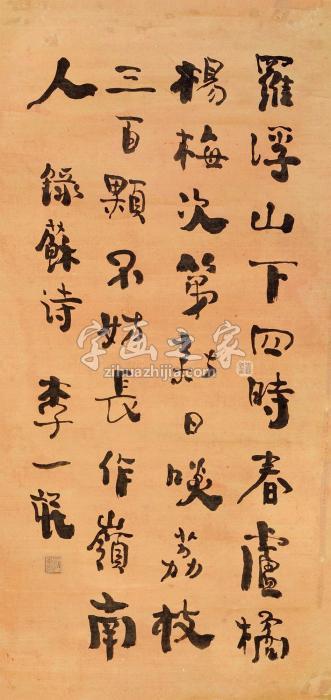 羅浮山下四時春盧橘
楊梅次第新日啖荔枝
三百顆不妨長作嶺南
人 錄蘇詩 李一氓
字画之家
www.zihuazhijia.com